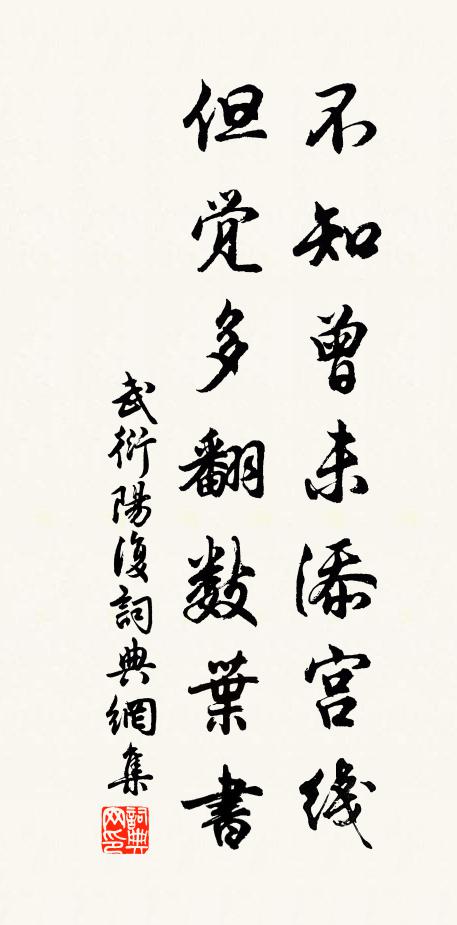 不知曾未添宫线
但觉多翻数葉書
武衍陽復詞典網集
詞典网印